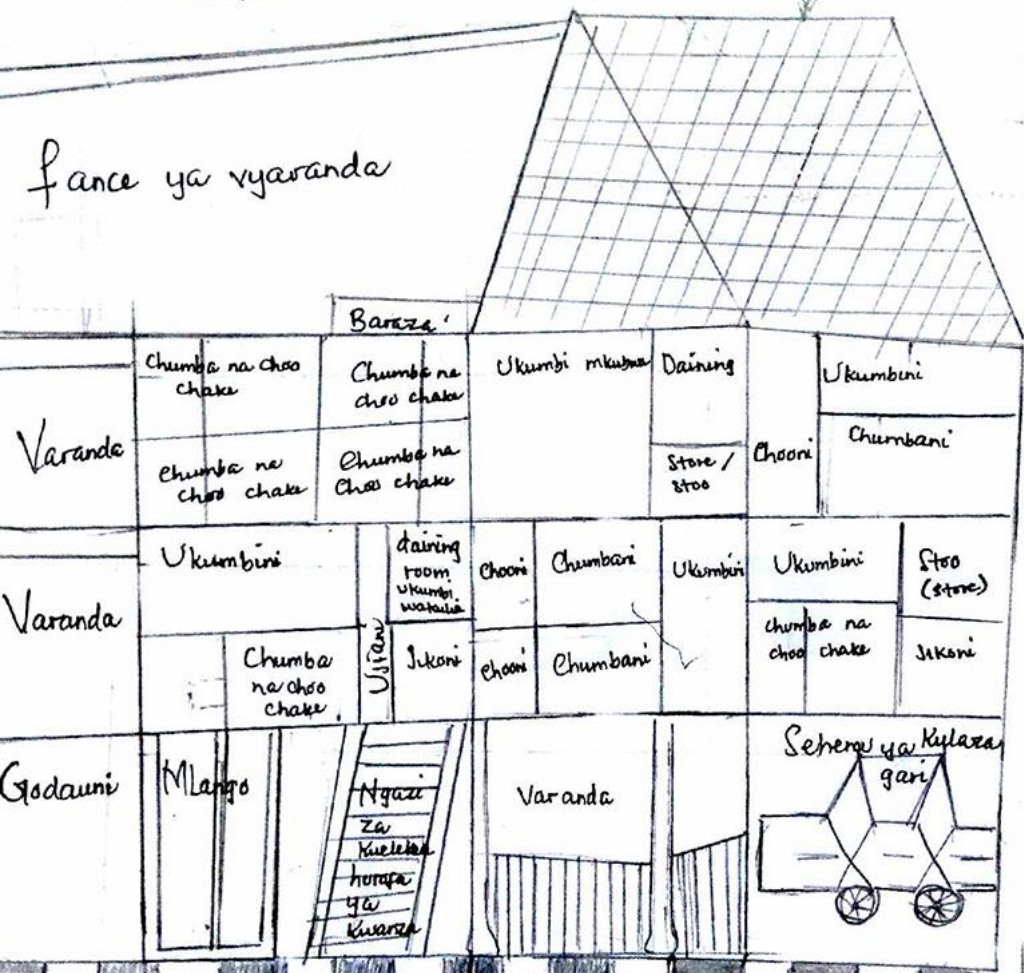 fance ya vyaranda
Baraza
Chumba na choo
chake
Chumba na
choo chake
Ukumbi mkubwa
Daining
Ukumbini
Varanda
Chumba na
choo chake
Chumba na
Choo chake
Store /
stoo
Chooni
Chumbani
Varanda
Ukumbini
daining
room
ukumbi
Chooni
Chumbani
Ukumbini
Ukumbini
Stoo
(store)
Chumba
na choo
chake
Ujiani
Jikoni
Chooni
Chumbani
chumba na
choo chake
Jikoni
Godauni
MLango
Ngazi
za
Kuelekea
horofa
ya
Kwanza
Varanda
Sehemu ya Kulaza
gari